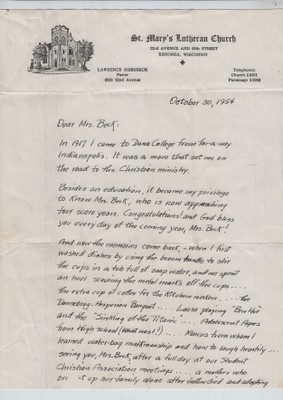 St. Mary's Lutheran Church
22nd AVENUE AND 80th STREET
KENOSHA, WISCONSIN
LAWRENCE SIERSBECK
Pastor
Telephones:
Church
Parsonage
October 30, 1954
Dear Mrs. Beck:
In 1917 I came to Dana College from far-away
Indianapolis. It was a move that set me on
the road to the Christian ministry.
Besides an education, it became my privilege
to know Mrs. Beck, who is now approaching
four score years. Congratulations! and God bless
you every day of the coming year, Mrs. Beck!
And now the memories come back, - when I first
washed dishes by using the broom handle to stir
the cups in a tub full of soap water, and we spent
an hour scouring the metal marks off the cups ....
the extra cup of coffee for the Kitchen maten.... the
Dannebrog-Hesperian Banquet .... Laura playing
and the "Sinking of the Titanic" .... Adolescent Papers
from High School (What was!) .... Marcus from whom I
learned water-bag marksmanship and how to laugh heartily ....
seeing you, Mrs. Beck, after a full day at our Student
Christian Association meetings .... a mother who
it up her family alone after